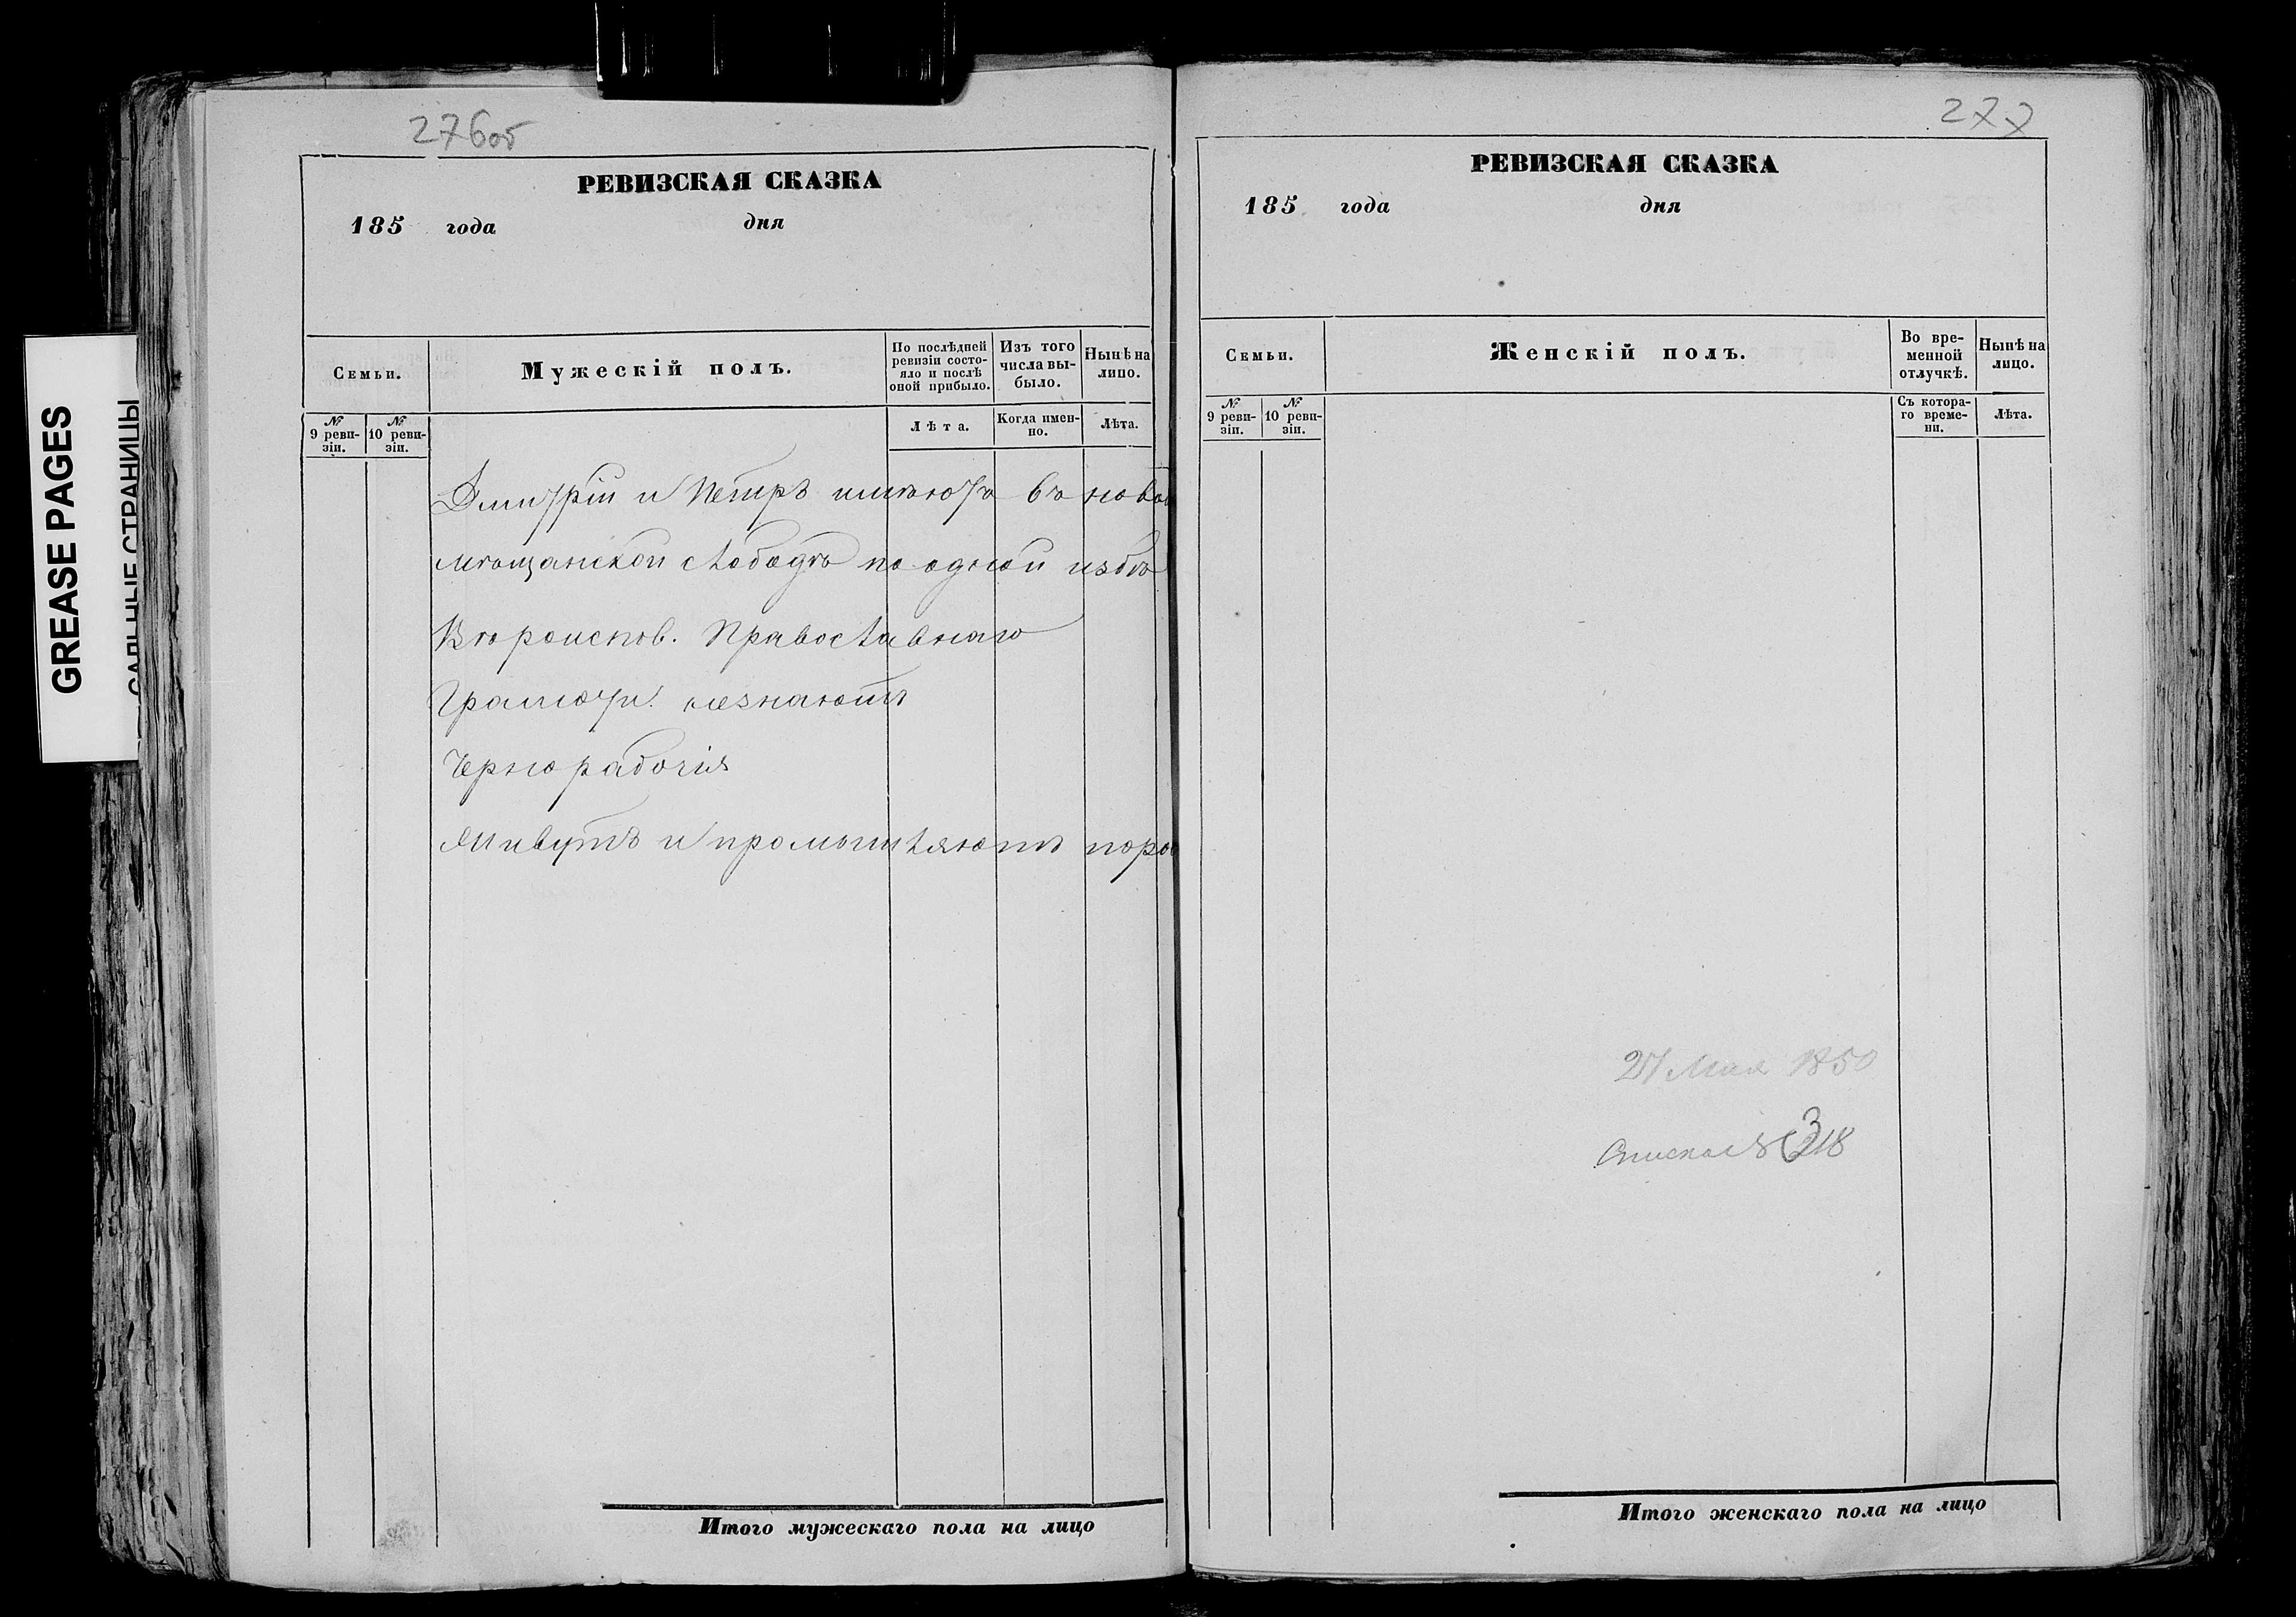 276об
РЕВИЗСКАЯ СКАЗКА
185 года дня
Семьи.
Мужескій полъ.
По послѣдней ревизіи состояло и послѣ оной прибыло.
Изъ того числа выбыло.
Нынѣ на лицо.
№ 9 ревизіи.
№ 10 ревизіи.
Лѣта.
Когда именно.
Лѣта.
Дмитрій и Петръ имѣютъ въ новой
мѣщанской слободѣ по одной избѣ
Вѣроиспов. Православнаго
Грамоти. незнаютъ
Чернорабочія
Живутъ и промышляютъ
Итого мужескаго пола на лицо
277
РЕВИЗСКАЯ СКАЗКА
185 года дня
Семьи.
Женскій полъ.
Во временной отлучкѣ.
Нынѣ на лицо.
№ 9 ревизіи.
№ 10 ревизіи.
Съ котораго времени.
Лѣта.
Мая 1850
318
Итого женскаго пола на лицо
GREASE PAGES
САЛЬНЫЕ СТРАНИЦЫ